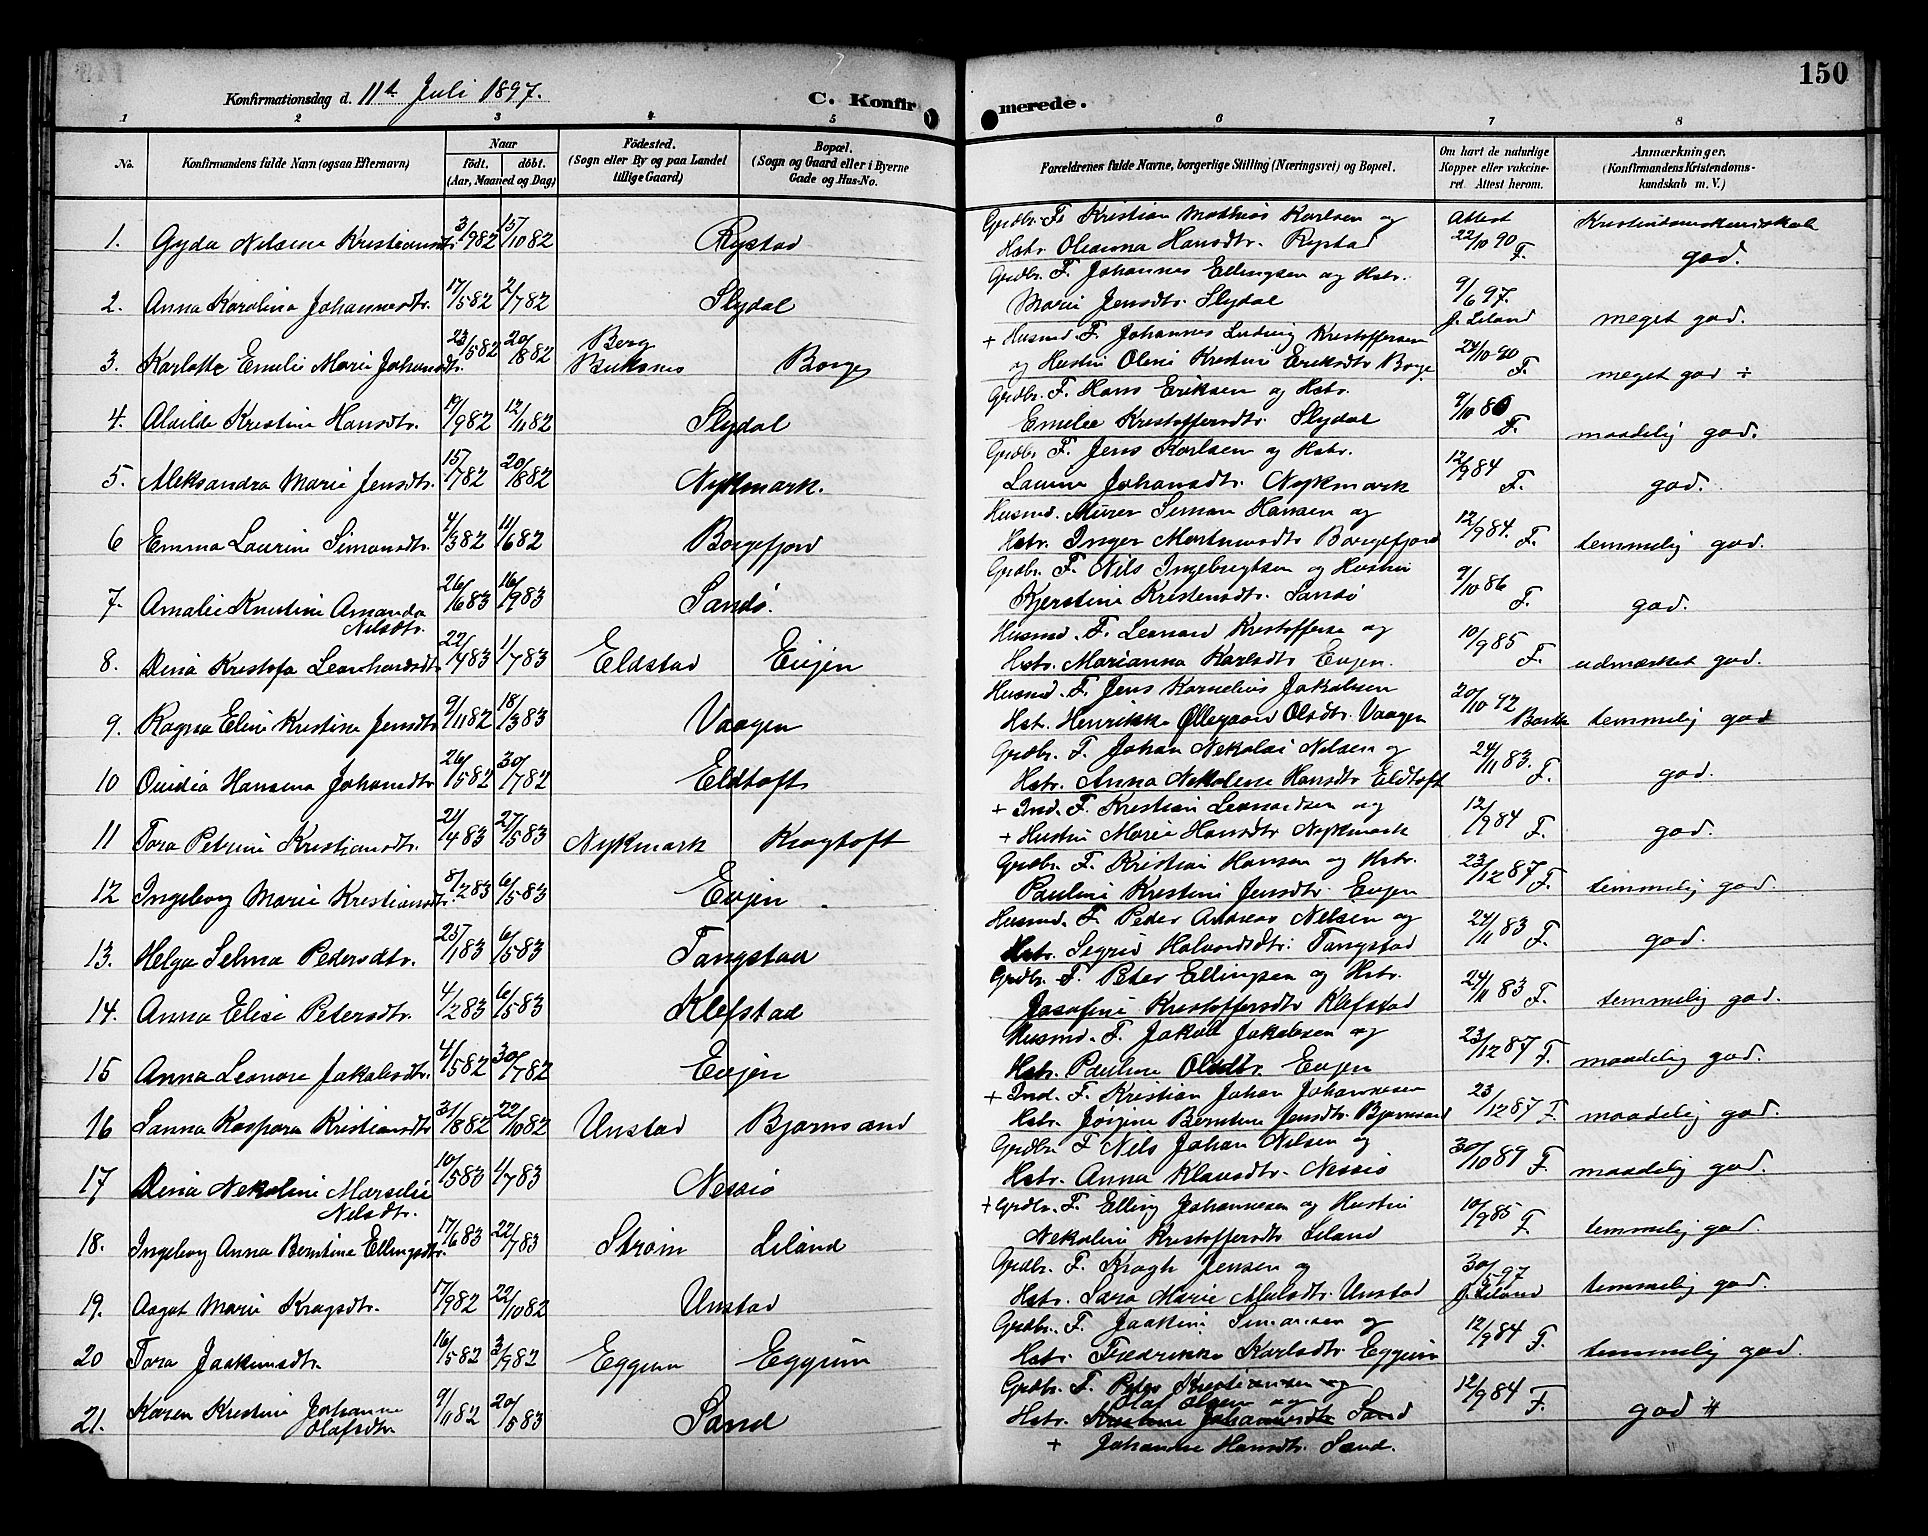 150
Konfirmationsdag d. 11te Juli 1897.
C. Konfir merede.
1 2 3 4 5 6 7 8
No.
Konfirmandens fulde Navn (ogsaa Efternavn)
Naar
födt. döbt.
(Aar, Maaned og Dag)
Födested.
(Sogn eller By og paa Landet
tillige Gaard)
Bopæl.
(Sogn og Gaard eller i Byerne
Gade og Hus-No.
Forældrenes fulde Navne, borgerlige Stilling (Næringsvei) og Bopæl.
Om havt de naturlige
Kopper eller vakcine-
ret. Attest herom.
Anmærkninger.
(Konfirmandens Kristendoms-
kundskab m. V.)
1. Gyda Nilsine Kristiansdtr. 3/9 82 15/10 82 Rystad
Grdbr. F. Kristian Mathias Karlsen og
Hstr. Oleanna Hansdtr. Rystad
Attest
22/10 90 F.
Kristendomskundskab
god.
2. Anna Karolina Johannesdtr. 17/5 82 2/7 82 Slydal
Grdbr. F. Johannes Ellingsen og Hstr.
Marie Jensdtr. Slydal
9/6 97.
J. Liland
meget god.
3. Karlotte Emelie Marie Johansdtr. 23/5 82 20/8 82 Berg
Buksnes Borge
+ Husmd F. Johannes Ludvig Kristoffersen
og Hustru Oline Kristine Eriksdtr Borge
24/10 90 F.
meget god ÷
4. Alvilde Kristine Hansdtr. 19/9 82 12/11 82 Slydal
Grdbr. F. Hans Eriksen og Hstr.
Emelie Kristoffersdtr. Slydal
9/10 86 F.
maadelig god.
5. Aleksandra Marie Jensdtr. 15/7 82 20/8 82 Nykmark.
Grdbr F. Jens Karlsen og Hstr.
Laurine Johansdtr. Nykmark
12/9 84 F.
god.
6 Emma Laurine Simonsdtr. 4/3 82 11/6 82 Borgefjord
Husmd. Murer Simon Hansen og
Hstr. Inger Martinusdtr Borgefjord
12/9 84. F.
temmelig god.
7. Amalie Knutine Amanda
Nilsdtr. 26/6 83 16/9 83 Sandö.
Grdbr. F. Nils Ingebrigtsen og Hustru
Kjerstine Kristensdtr. Sandö
9/10 86 F.
god.
8. Dina Kristofa Leonhardsdtr. 22/4 83 1/7 83 Eldstad Evjen
Husmd. F. Leonard Kristoffersen og
Hstr. Marianna Karlsdtr Evjen.
10/9 85 F.
udmærket god.
9. Ragna Eline Kristine Jensdtr. 9/11 82 18/3 83 Vaagen
Husmd. F. Jens Kornelius Jakobsen
Hst. Henrikke Ollegaard Olsdtr. Vaagen
20/10 92
temmelig god
10 Ovidia Hansina Johansdtr 26/5 82 30/7 82 Eldtoft
Grdbr. F. Johan Nekolai Nilsen og
Hstr. Anna Nekoline Hansdtr Eldtoft
24/11 83. F.
god.
11 Tora Petrine Kristiansdtr. 21/4 83 27/5 83 Nykmark Kragtoft
+ Ind. F. Kristian Leonardsen og
+ Hustru Marie Hansdtr Nykmark
12/9 84 F.
god.
12 Ingeborg Marie Kristiansdtr. 8/2 83 6/5 83 Evjen
Grdbr. F. Kristian Hansen og Hstr.
Pauline Kristine Jensdtr. Evjen
23/12 87 F.
temmelig god.
13. Helga Selma Pedersdtr. 25/1 83 6/5 83 Tangstad
Husmd. F. Peder Andreas Nilsen og
Hstr. Segrid Halvordsdtr. Tangstad
24/11 83 F.
god.
14. Anna Elise Petersdtr. 4/2 83 6/5 83 Klefstad
Grdbr. F. Peter Ellingsen og Hstr.
Josefine Kristoffersdtr Klefstad
24/11 83 F.
temmelig god.
15 Anna Leonore Jakobsdtr. 4/5 82 30/7 82 Evjen
Husmd. F. Jakob Jakobsen og
Hstr. Pauline Olsdtr. Evjen
23/12 87 F.
maadelig god.
16 Sanna Kaspara Kristiansdtr 31/8 82 22/10 82 Unstad Bjørnsand
+ Ind. F. Kristian Johan Johannesen
Hstr. Jørgine Berntine Jensdtr. Bjørnsand
23/12 87 F.
maadelig god.
17 Dina Nekoline Marselie
Nilsdtr. 10/5 83 1/7 83 Nessiö
Grdbr. F Nils Johan Nilsen og
Hstr. Anna Klausdtr. Nessiö
30/10 89 F.
maadelig god.
18. Ingeborg Anna Berntine Ellingsdtr. 17/6 83 22/7 83 Ström Liland
+ Grdbr. F. Elling Johannesen og Hustru
Nekoline Kristoffersdtr Liland
10/9 85 F.
temmelig god.
19. Aagot Marie Kragsdtr. 17/9 82 22/10 82 Unstad
Grdbr. F. Kragh Jensen og
Hstr. Sara Marie Nilsdtr. Unstad
30/5 97
J. Liland
temmelig god.
20 Tora Joakimsdtr. 16/5 82 3/9 82 Eggum Eggum
Grdbr. F. Joakim Simonsen og
Hstr. Fredrikke Karlsdtr. Eggum
12/9 84 F.
temmelig god.
21. Karen Kristine Johanne
Olafsdtr. 9/11 82 20/5 83 Sand
Grdbr. F. Peter Kristiansen og
Olaf Olsen og
Hstr. Kristine Johannesdtr Sand
+ Johanne Hansdtr. Sand.
12/9 84 F.
god